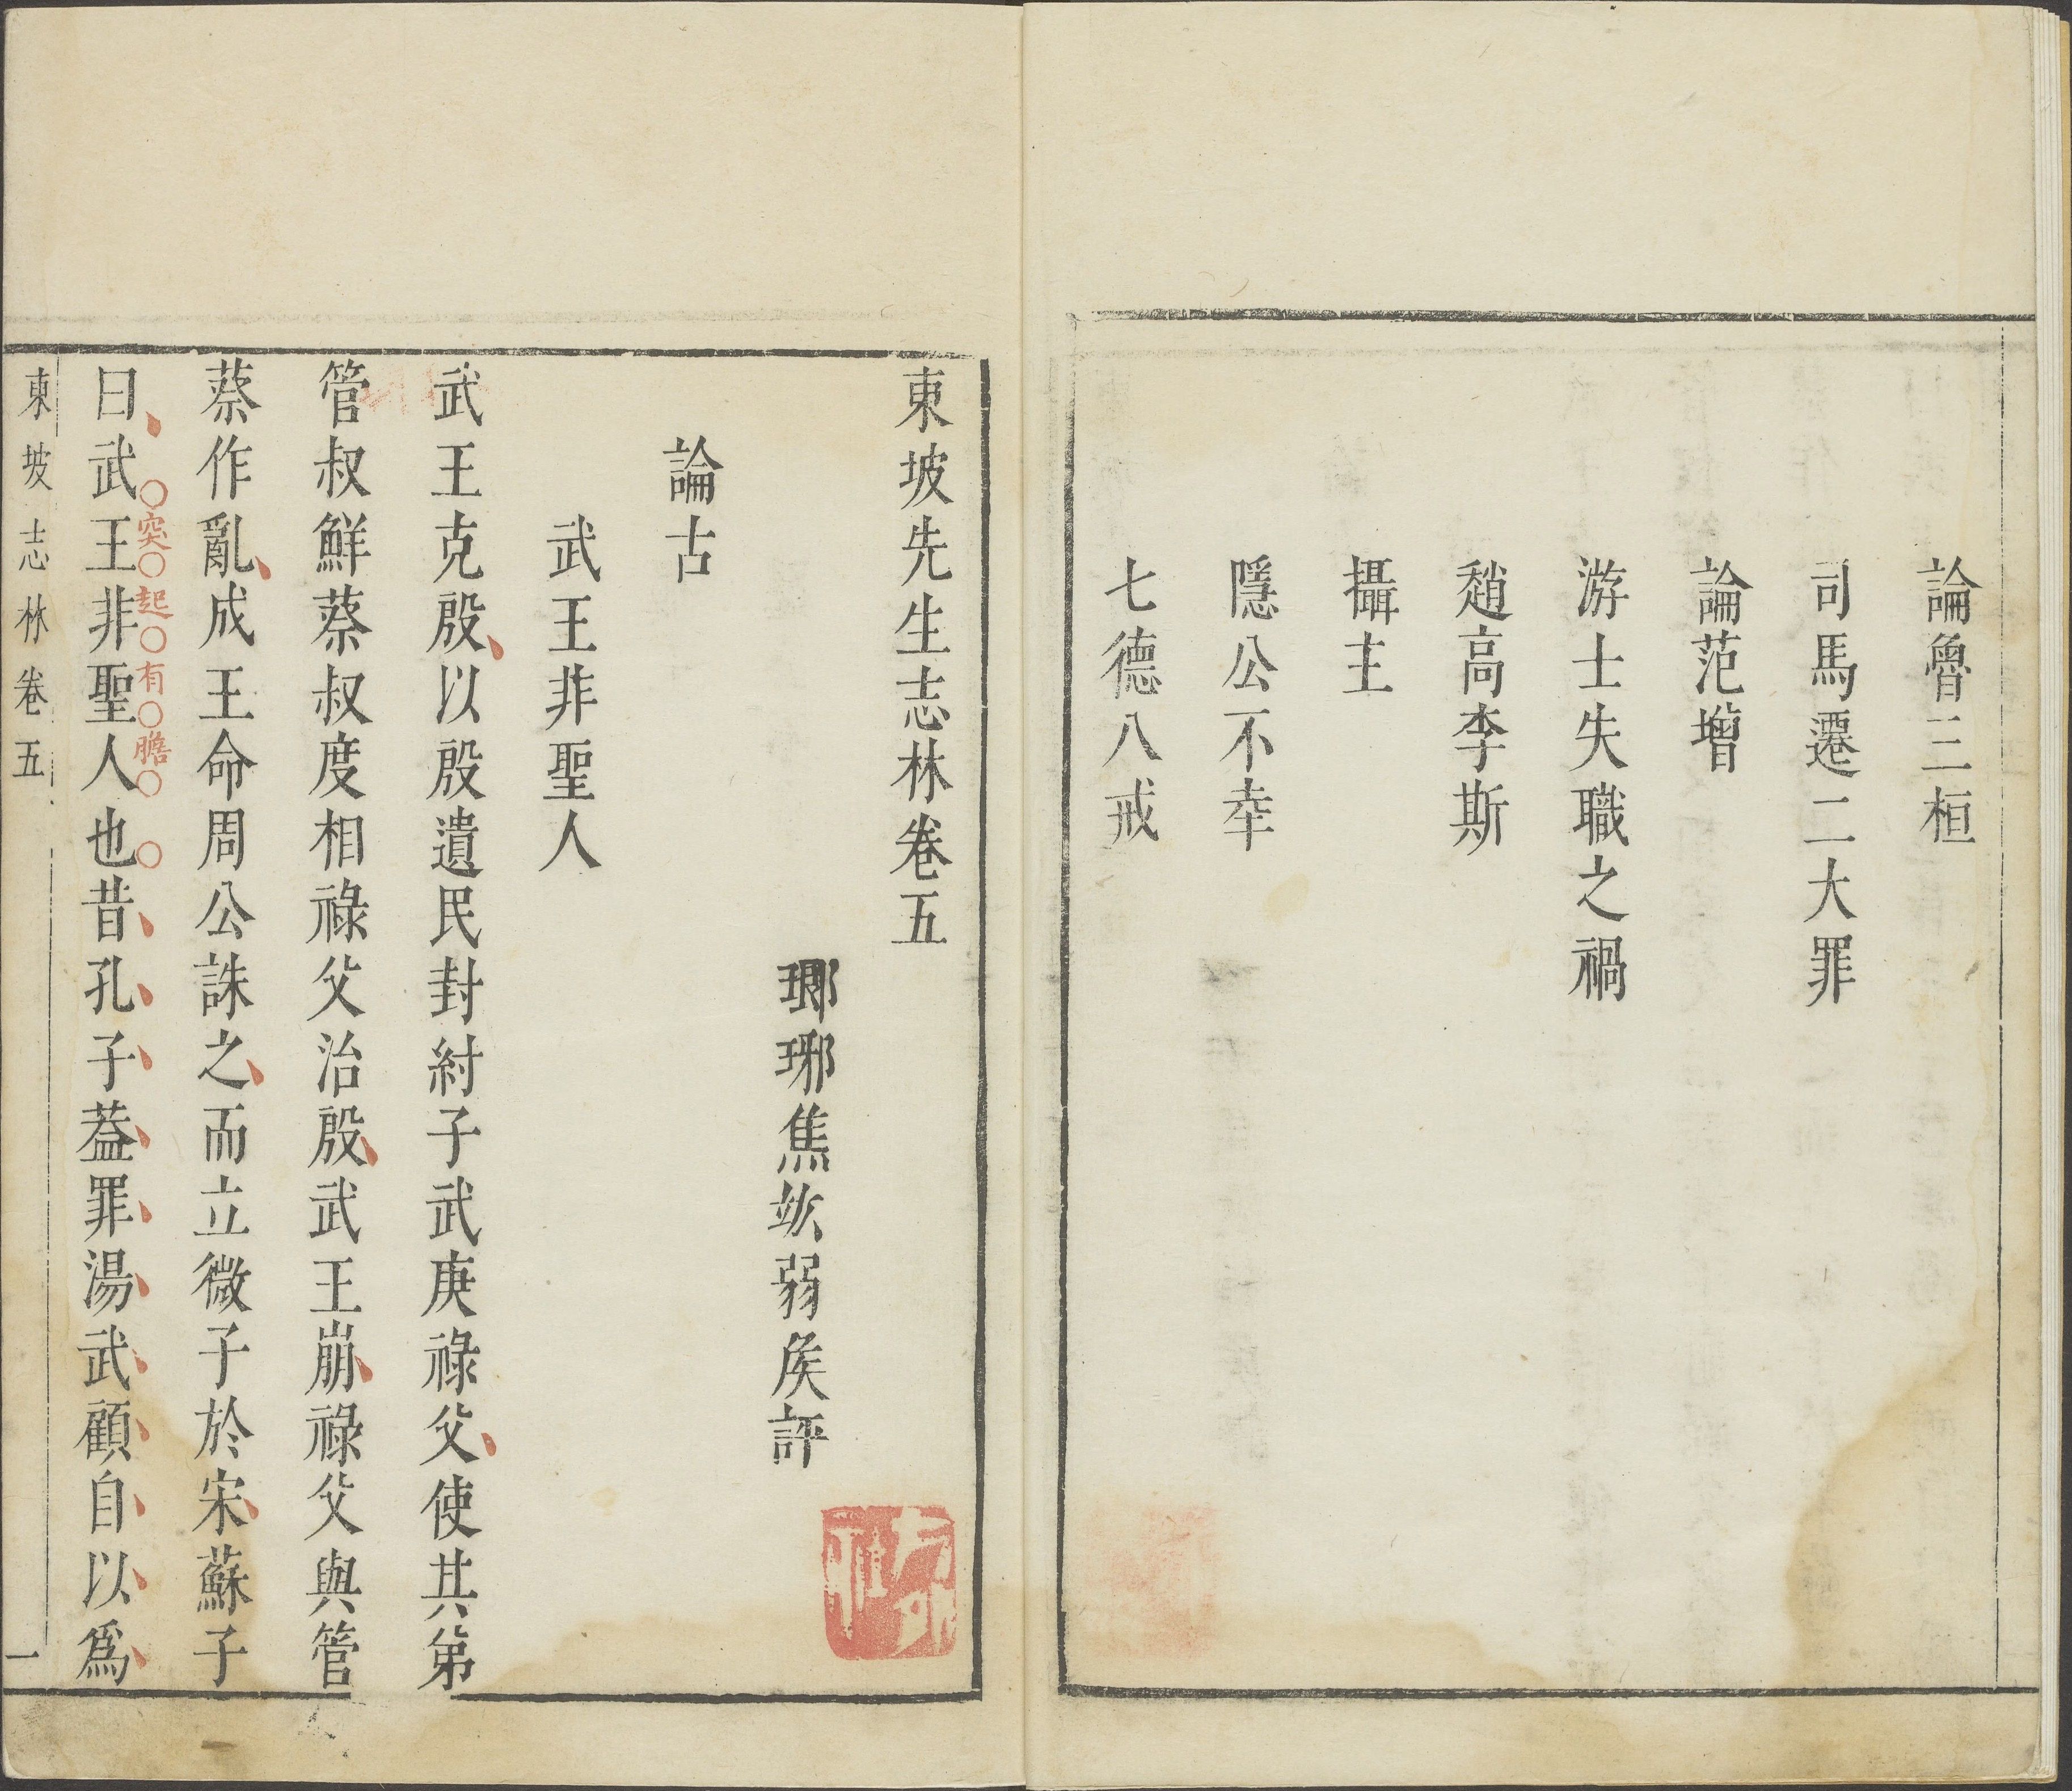 論魯三桓
司馬遷二大罪
論范增
游士失職之禍
趙高李斯
攝主
隱公不幸
七德八戒
東坡先生志林卷五
瑯琊焦竑弱侯評
論古
武王非聖人
武王克殷以殷遺民封紂子武庚祿父使其弟
管叔鮮蔡叔度相祿父治殷武王崩祿父與管
蔡作亂成王命周公誅之而立微子於宋蘇子
突起有膽
曰武王非聖人也昔孔子葢罪湯武顧自以爲
東坡志林卷五
一